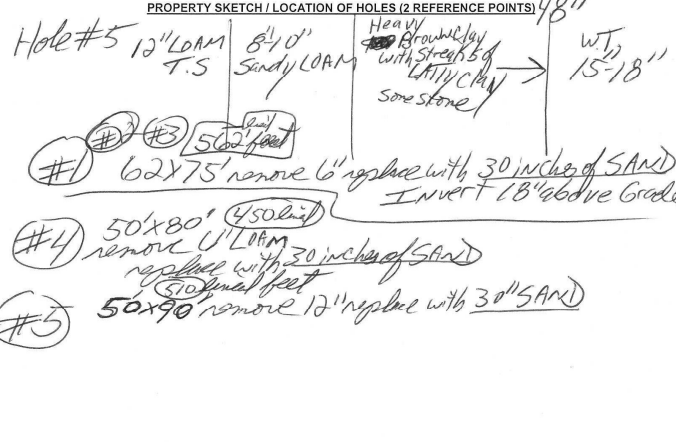 PROPERTY SKETCH / LOCATION OF HOLES (2 REFERENCE POINTS)
48"
Hole #5 12" LOAM T.S
8"-10" Sandy LOAM
Heavy Brown Clay with Streaks of Clay some stone
W.T. 15"-18"
#2 #3 562' lineal feet
#1 62'X75' remove 6" replace with 30 inches of SAND
Invert 18" above Grade
#4 50'X80' 450 lineal
remove LOAM
replace with 30 inches of SAND
510 lineal feet
#5 50'X90' remove 12" replace with 30" SAND